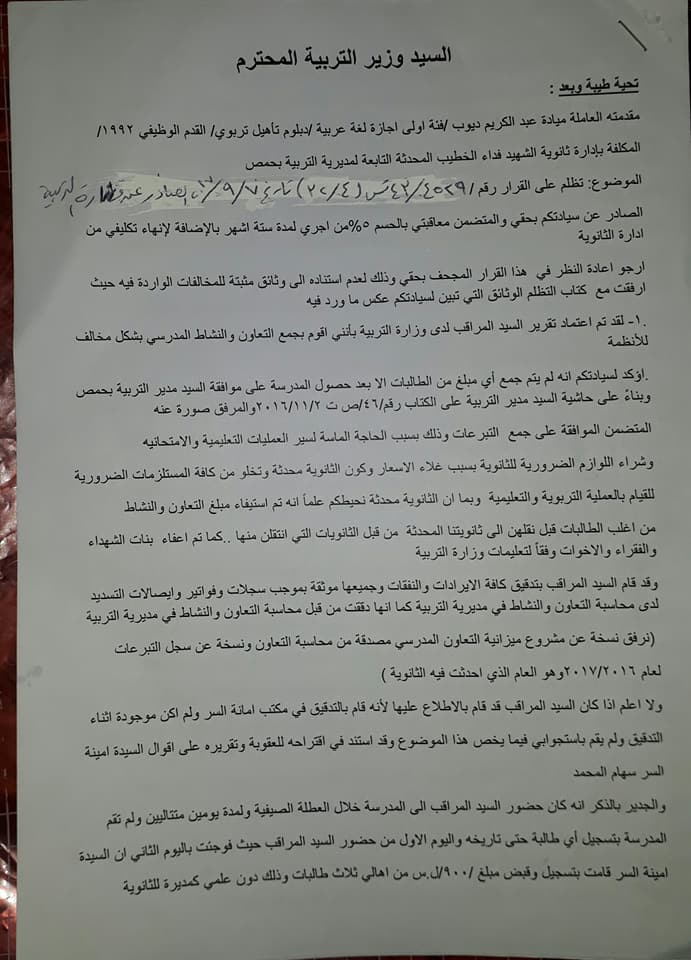 السيد وزير التربية المحترم
تحية طيبة وبعد :
مقدمته العاملة ميادة عبد الكريم ديوب /فئة اولى اجازة لغة عربية /دبلوم تأهيل تربوي/ القدم الوظيفي ١٩٩٢/
المكلفة بإدارة ثانوية الشهيد فداء الخطيب المحدثة التابعة لمديرية التربية بحمص
الموضوع: تظلم على القرار رقم / تاريخ
الصادر عن سيادتكم بحقي والمتضمن معاقبتي بالحسم ٥%من اجري لمدة ستة اشهر بالإضافة لإنهاء تكليفي من
ادارة الثانوية
ارجو اعادة النظر في هذا القرار المجحف بحقي وذلك لعدم استناده الى وثائق مثبتة للمخالفات الواردة فيه حيث
ارفقت مع كتاب التظلم الوثائق التي تبين لسيادتكم عكس ما ورد فيه
.١- لقد تم اعتماد تقرير السيد المراقب لدى وزارة التربية بأنني اقوم بجمع التعاون والنشاط المدرسي بشكل مخالف
للأنظمة
.اؤكد لسيادتكم انه لم يتم جمع أي مبلغ من الطالبات الا بعد حصول المدرسة على موافقة السيد مدير التربية بحمص
وبناءً على حاشية السيد مدير التربية على الكتاب رقم/٤٦/ص ت ٢٠١٦/١١/٢والمرفق صورة عنه
المتضمن الموافقة على جمع التبرعات وذلك بسبب الحاجة الماسة لسير العمليات التعليمية والامتحانيه
وشراء اللوازم الضرورية للثانوية بسبب غلاء الاسعار وكون الثانوية محدثة وتخلو من كافة المستلزمات الضرورية
للقيام بالعملية التربوية والتعليمية وبما ان الثانوية محدثة نحيطكم علماً انه تم استيفاء مبلغ التعاون والنشاط
من اغلب الطالبات قبل نقلهن الى ثانويتنا المحدثة من قبل الثانويات التي انتقلن منها ..كما تم اعفاء بنات الشهداء
والفقراء والاخوات وفقاً لتعليمات وزارة التربية
وقد قام السيد المراقب بتدقيق كافة الايرادات والنفقات وجميعها موثقة بموجب سجلات وفواتير وايصالات التسديد
لدى محاسبة التعاون والنشاط في مديرية التربية كما انها دققت من قبل محاسبة التعاون والنشاط في مديرية التربية
(نرفق نسخة عن مشروع ميزانية التعاون المدرسي مصدقة من محاسبة التعاون ونسخة عن سجل التبرعات
لعام ٢٠١٧/٢٠١٦وهو العام الذي احدثت فيه الثانوية )
ولا اعلم اذا كان السيد المراقب قد قام بالاطلاع عليها لأنه قام بالتدقيق في مكتب امانة السر ولم اكن موجودة اثناء
التدقيق ولم يقم باستجوابي فيما يخص هذا الموضوع وقد استند في اقتراحه للعقوبة وتقريره على اقوال السيدة امينة
السر سهام المحمد
والجدير بالذكر انه كان حضور السيد المراقب الى المدرسة خلال العطلة الصيفية ولمدة يومين متتاليين ولم تقم
المدرسة بتسجيل أي طالبة حتى تاريخه واليوم الاول من حضور السيد المراقب حيث فوجئت باليوم الثاني ان السيدة
امينة السر قامت بتسجيل وقبض مبلغ /٩٠٠/ل.س من اهالي ثلاث طالبات وذلك دون علمي كمديرة للثانوية